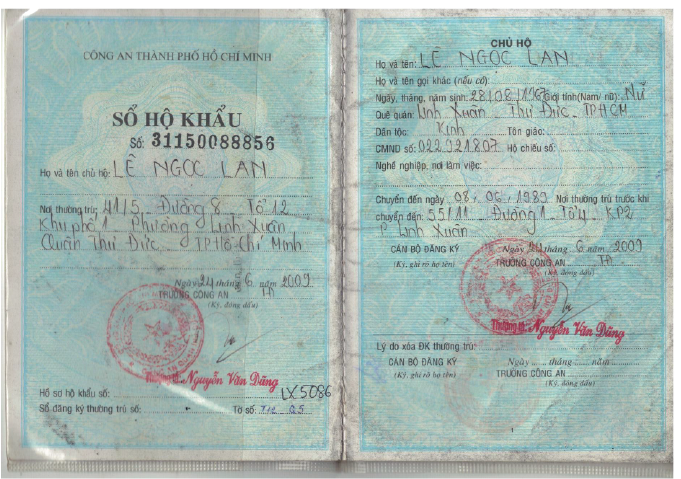 CÔNG AN THÀNH PHỐ HỒ CHÍ MINH
SỔ HỘ KHẨU
Số: 31150088856
Họ và tên chủ hộ: LÊ NGỌC LAN
Nơi thường trú: 41/5 Đường 8 Tổ 12
Khu phố 1 Phường Linh Xuân
Quận Thủ Đức TP Hồ Chí Minh
Ngày 24 tháng 6 năm 2009
TRƯỞNG CÔNG AN
(Ký, đóng dấu)
Nguyễn Văn Dũng
Hồ sơ hộ khẩu số: LX5086
Sổ đăng ký thường trú số: Tờ số:
CHỦ HỘ
Họ và tên: LÊ NGỌC LAN
Họ và tên gọi khác (nếu có):
Ngày, tháng, năm sinh: 28/08/1967 Giới tính(Nam/ nữ): Nữ
Quê quán: Linh Xuân - Thủ Đức - TPHCM
Dân tộc: Kinh Tôn giáo:
CMND số: 022021807 Hộ chiếu số:
Nghề nghiệp, nơi làm việc:
Chuyển đến ngày 08.06.1989 Nơi thường trú trước khi
chuyển đến: 55/11 Đường 1 Tổ 4 KP2
P Linh Xuân
CÁN BỘ ĐĂNG KÝ
(Ký, ghi rõ họ tên)
Ngày 24 tháng 6 năm 2009
TRƯỞNG CÔNG AN
(Ký, đóng dấu)
Nguyễn Văn Dũng
Lý do xóa ĐK thường trú:
CÁN BỘ ĐĂNG KÝ
(Ký, ghi rõ họ tên)
Ngày ..... tháng ..... năm .....
TRƯỞNG CÔNG AN
(Ký, đóng dấu)
1